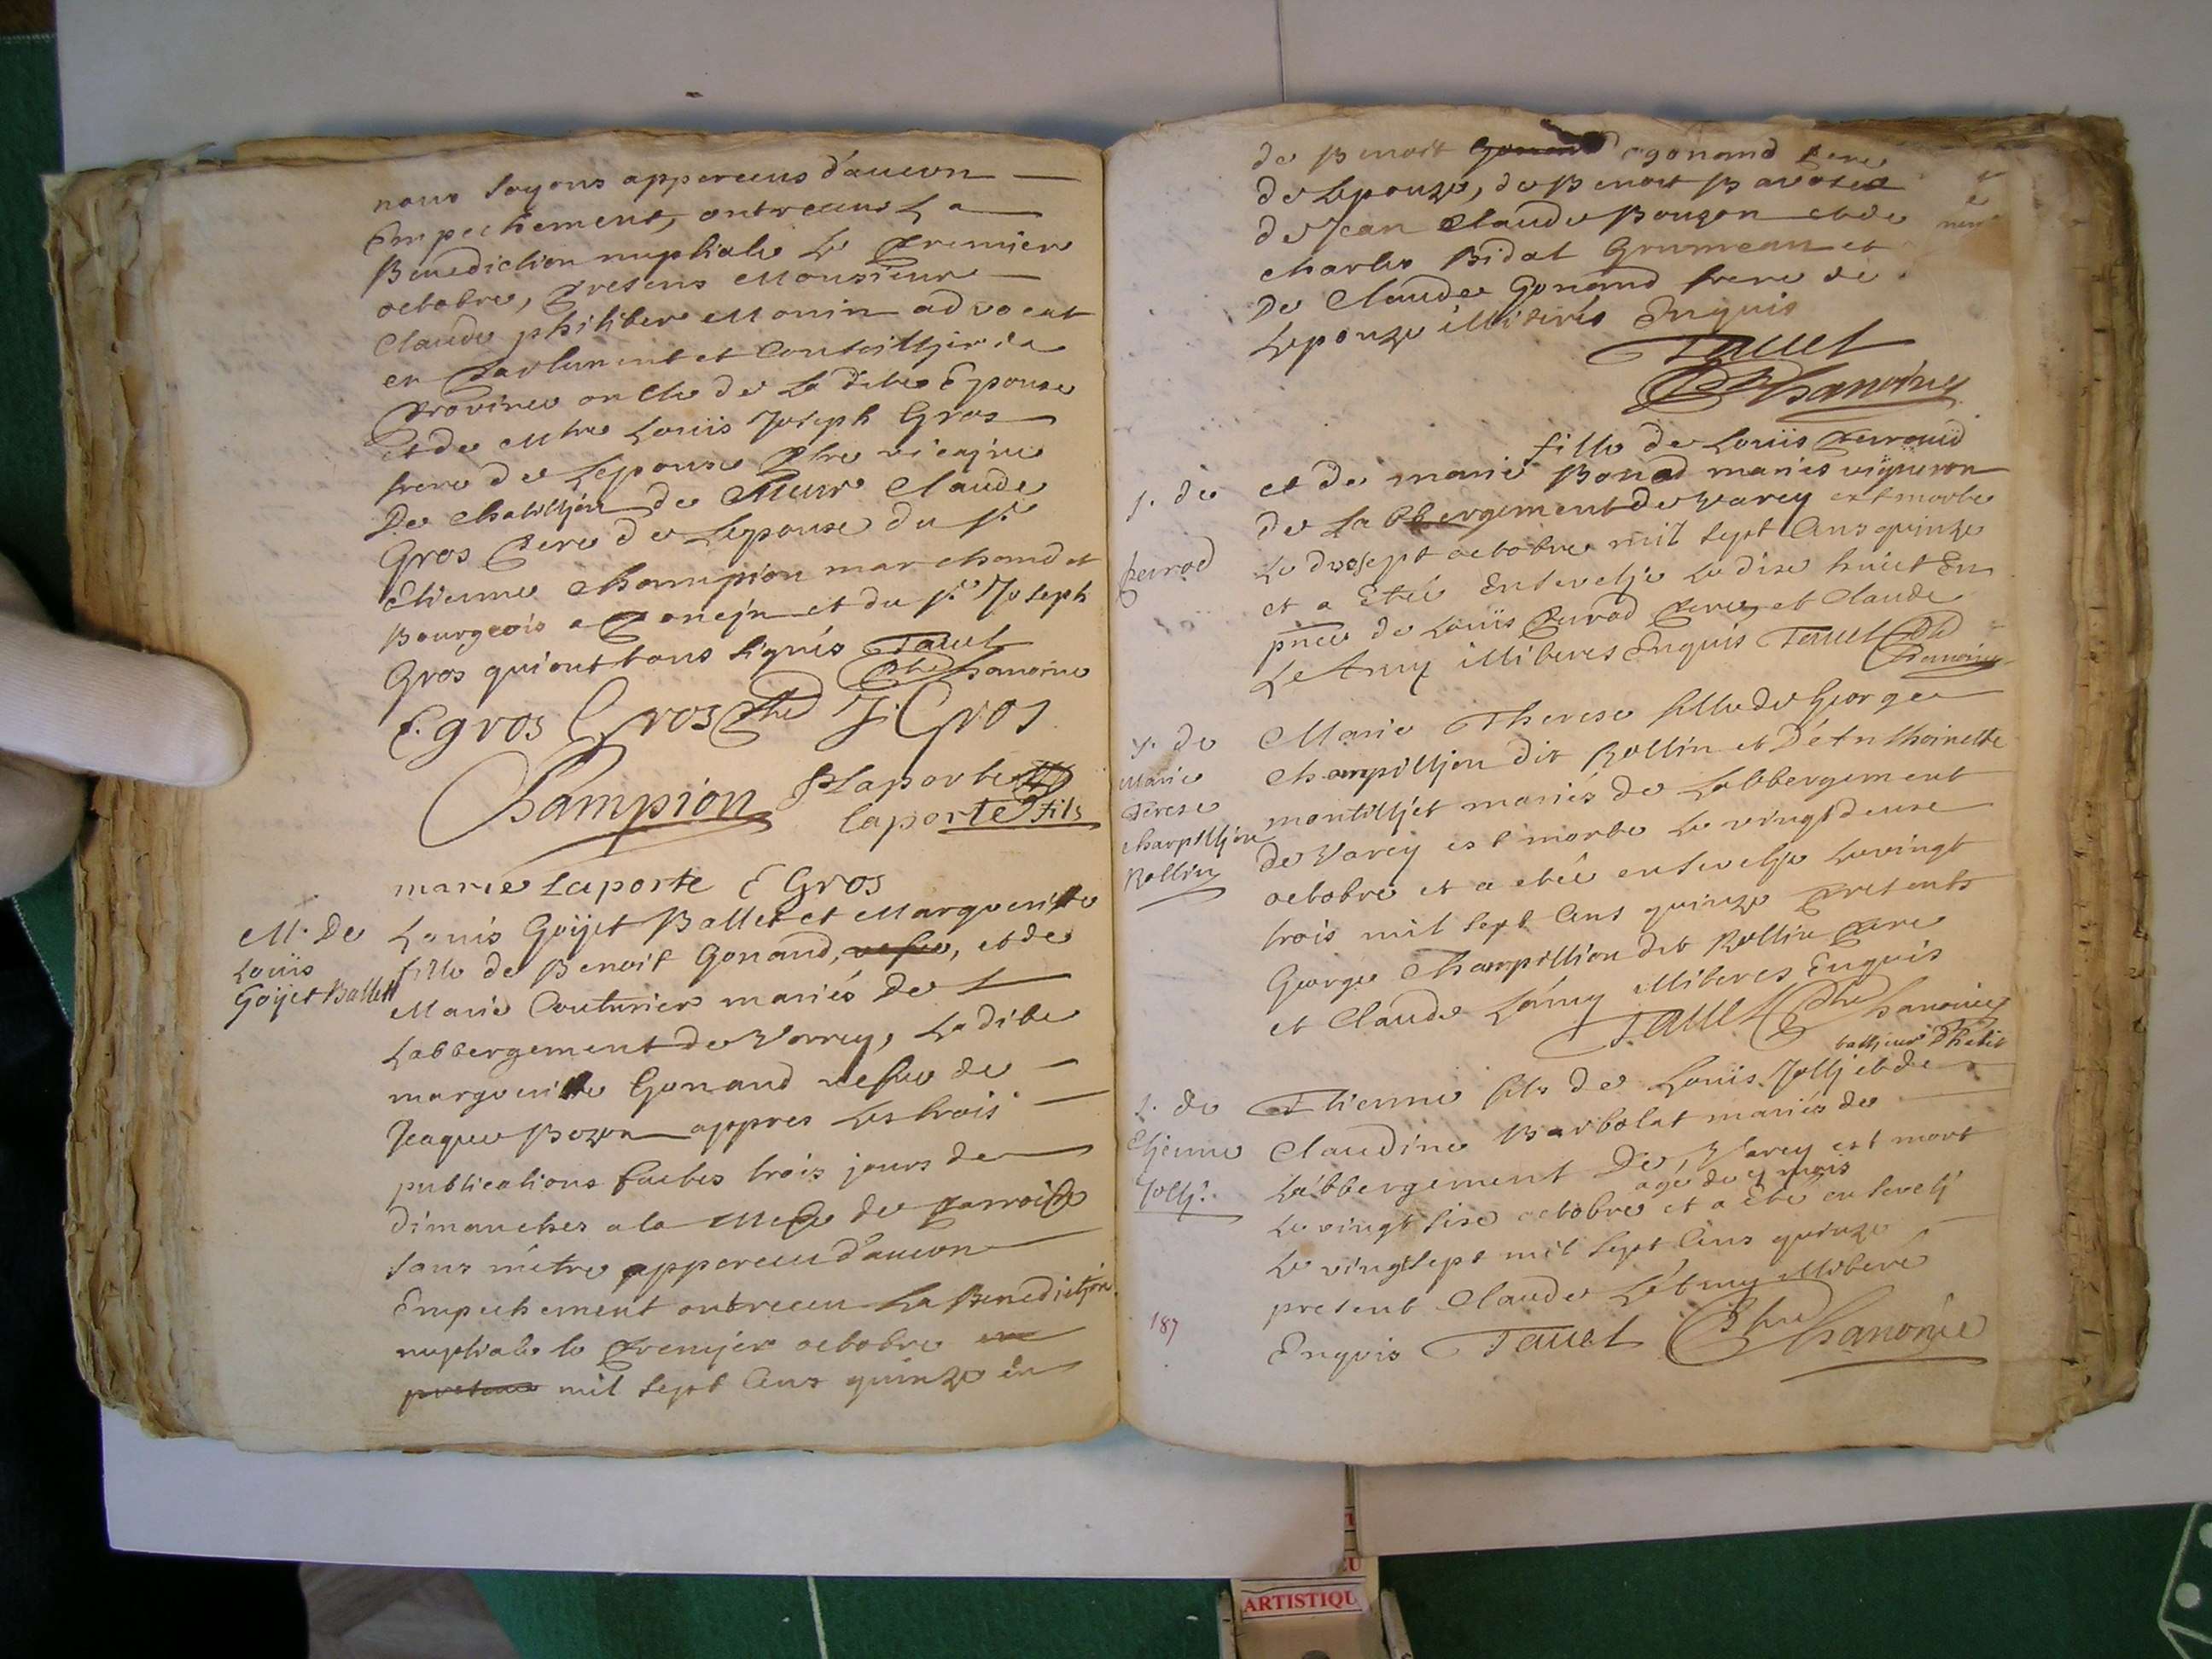 nous soyons apperceus d'aucun
Empechement, ont receus La
Benediction nuptiale Le Premier
octobre, Presens Monsieur
Claude philiber Monin advocat
en Parlement et Conseillier de
Province oncle de La dite Epouse
et de Mtre Louis Joseph Gros
frere de Lepouse Ptre vicajre
De Chatilljon de Sieur Claude
Gros Pere de Lepouse du sr
Etienne Champion marchand et
Bourgeois a Poncjn et du sr Joseph
Gros qui ont tous signés Tavel
Ptre Chanoine
E. gros Gros Ptre J. Gros
Champion PLaporte
laporte fils
marie laporte E Gros
M. De
Louis
Goyet Ballet
Louis Goyet Ballet et Margueritte
fille de Benoit Gonand, vefve, et de
Marie Couturier mariés de L
Labbergement de Varrey, La dite
margueritte Gonand vefve de
Jaque Bozon appres Les trois
publications faites trois jours de
dimanches a la Messe de Parroisse
sans m'etre apperceu d'aucun
Empechement ont receu La Benedictjon
nuptiale le Premjer octobre
mil sept Cens quinze en
de Benoit Gonand gonand Pere
de Lepouze, de Benoit Bavoset
de Jean Claude Bouzon et de
Charles Bidal Grumeau et
De Claude Gonand frere de
Lepouze illiterés Enquis
Tavel
Ptre Chanoine
s. de
perrod
fille de Louis Perroud
et de marie Bonad mariés vigneron
de Labbergement de Varey est morte
Le dixsept octobre mil sept Cens quinze
et a Eteé Enseveljie Le dise huict En
pnce de Louis Perrod Pere, et Claude
Letmy illiteres Enquis Tavel Ptre
Chanoine
s. de
Marie
Terese
charpilljon
Rollin
Marie Therese fille de George
Champilljon dit Rollin et D'Anthoinette
montilljet mariés de Labbergement
de Varey est morte Le vingtdeuse
octobre et a eteé enseveljie Le vingt
trois mil sept Cens quinze Presents
George Champillion dit Rollin Pere
et Claude Lámy illiteres Enquis
Tavel Ptre Chanoine
s. de
Etjenne
Jollj.
tailljeur D'habit
Etienne fils de Louis Jollj et de
Claudine Barbolat mariés de
Labbergement De Varey est mort
agé de 9 mois
Le vingt sise octobre et a Eté enseveli
Le vingtsept mil sept Cens quinze
present Claude Létmy illiteré
Enquis Tavel Ptre Chanoine
187
ARTISTIQU